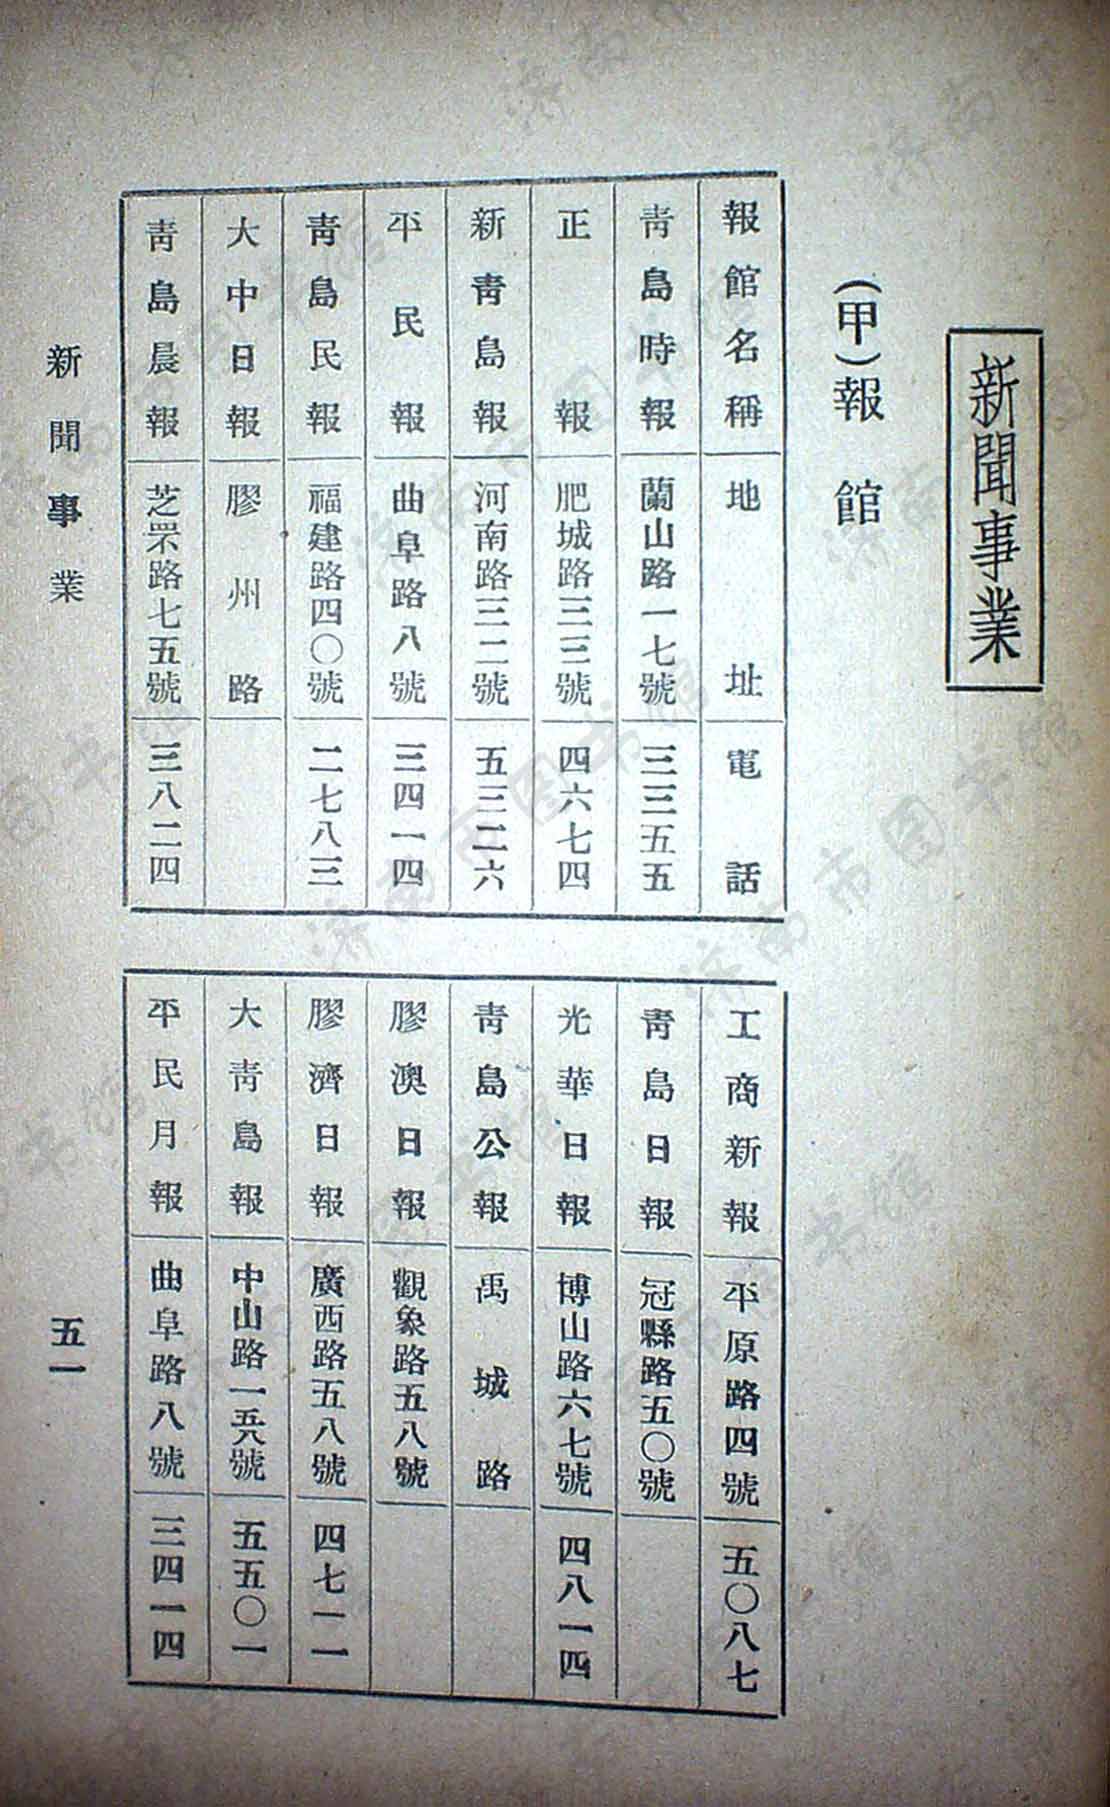 新聞事業
(甲)報館
報館名稱 地址 電話
青島時報 蘭山路一七號 三三五五
正報 肥城路三三號 四六七四
新青島報 河南路三二號 五三二六
平民報 曲阜路八號 三四一四
青島民報 福建路四〇號 二七八三
大中日報 膠州路
青島晨報 芝罘路七五號 三八二四
工商新報 平原路四號 五〇八七
青島日報 冠縣路五〇號
光華日報 博山路六七號 四八一四
青島公報 禹城路
膠澳日報 觀象路五八號
膠濟日報 廣西路五八號 四七一一
大青島報 中山路一五六號 五五〇一
平民月報 曲阜路八號 三四一四
新聞事業
五一
济南市图书馆